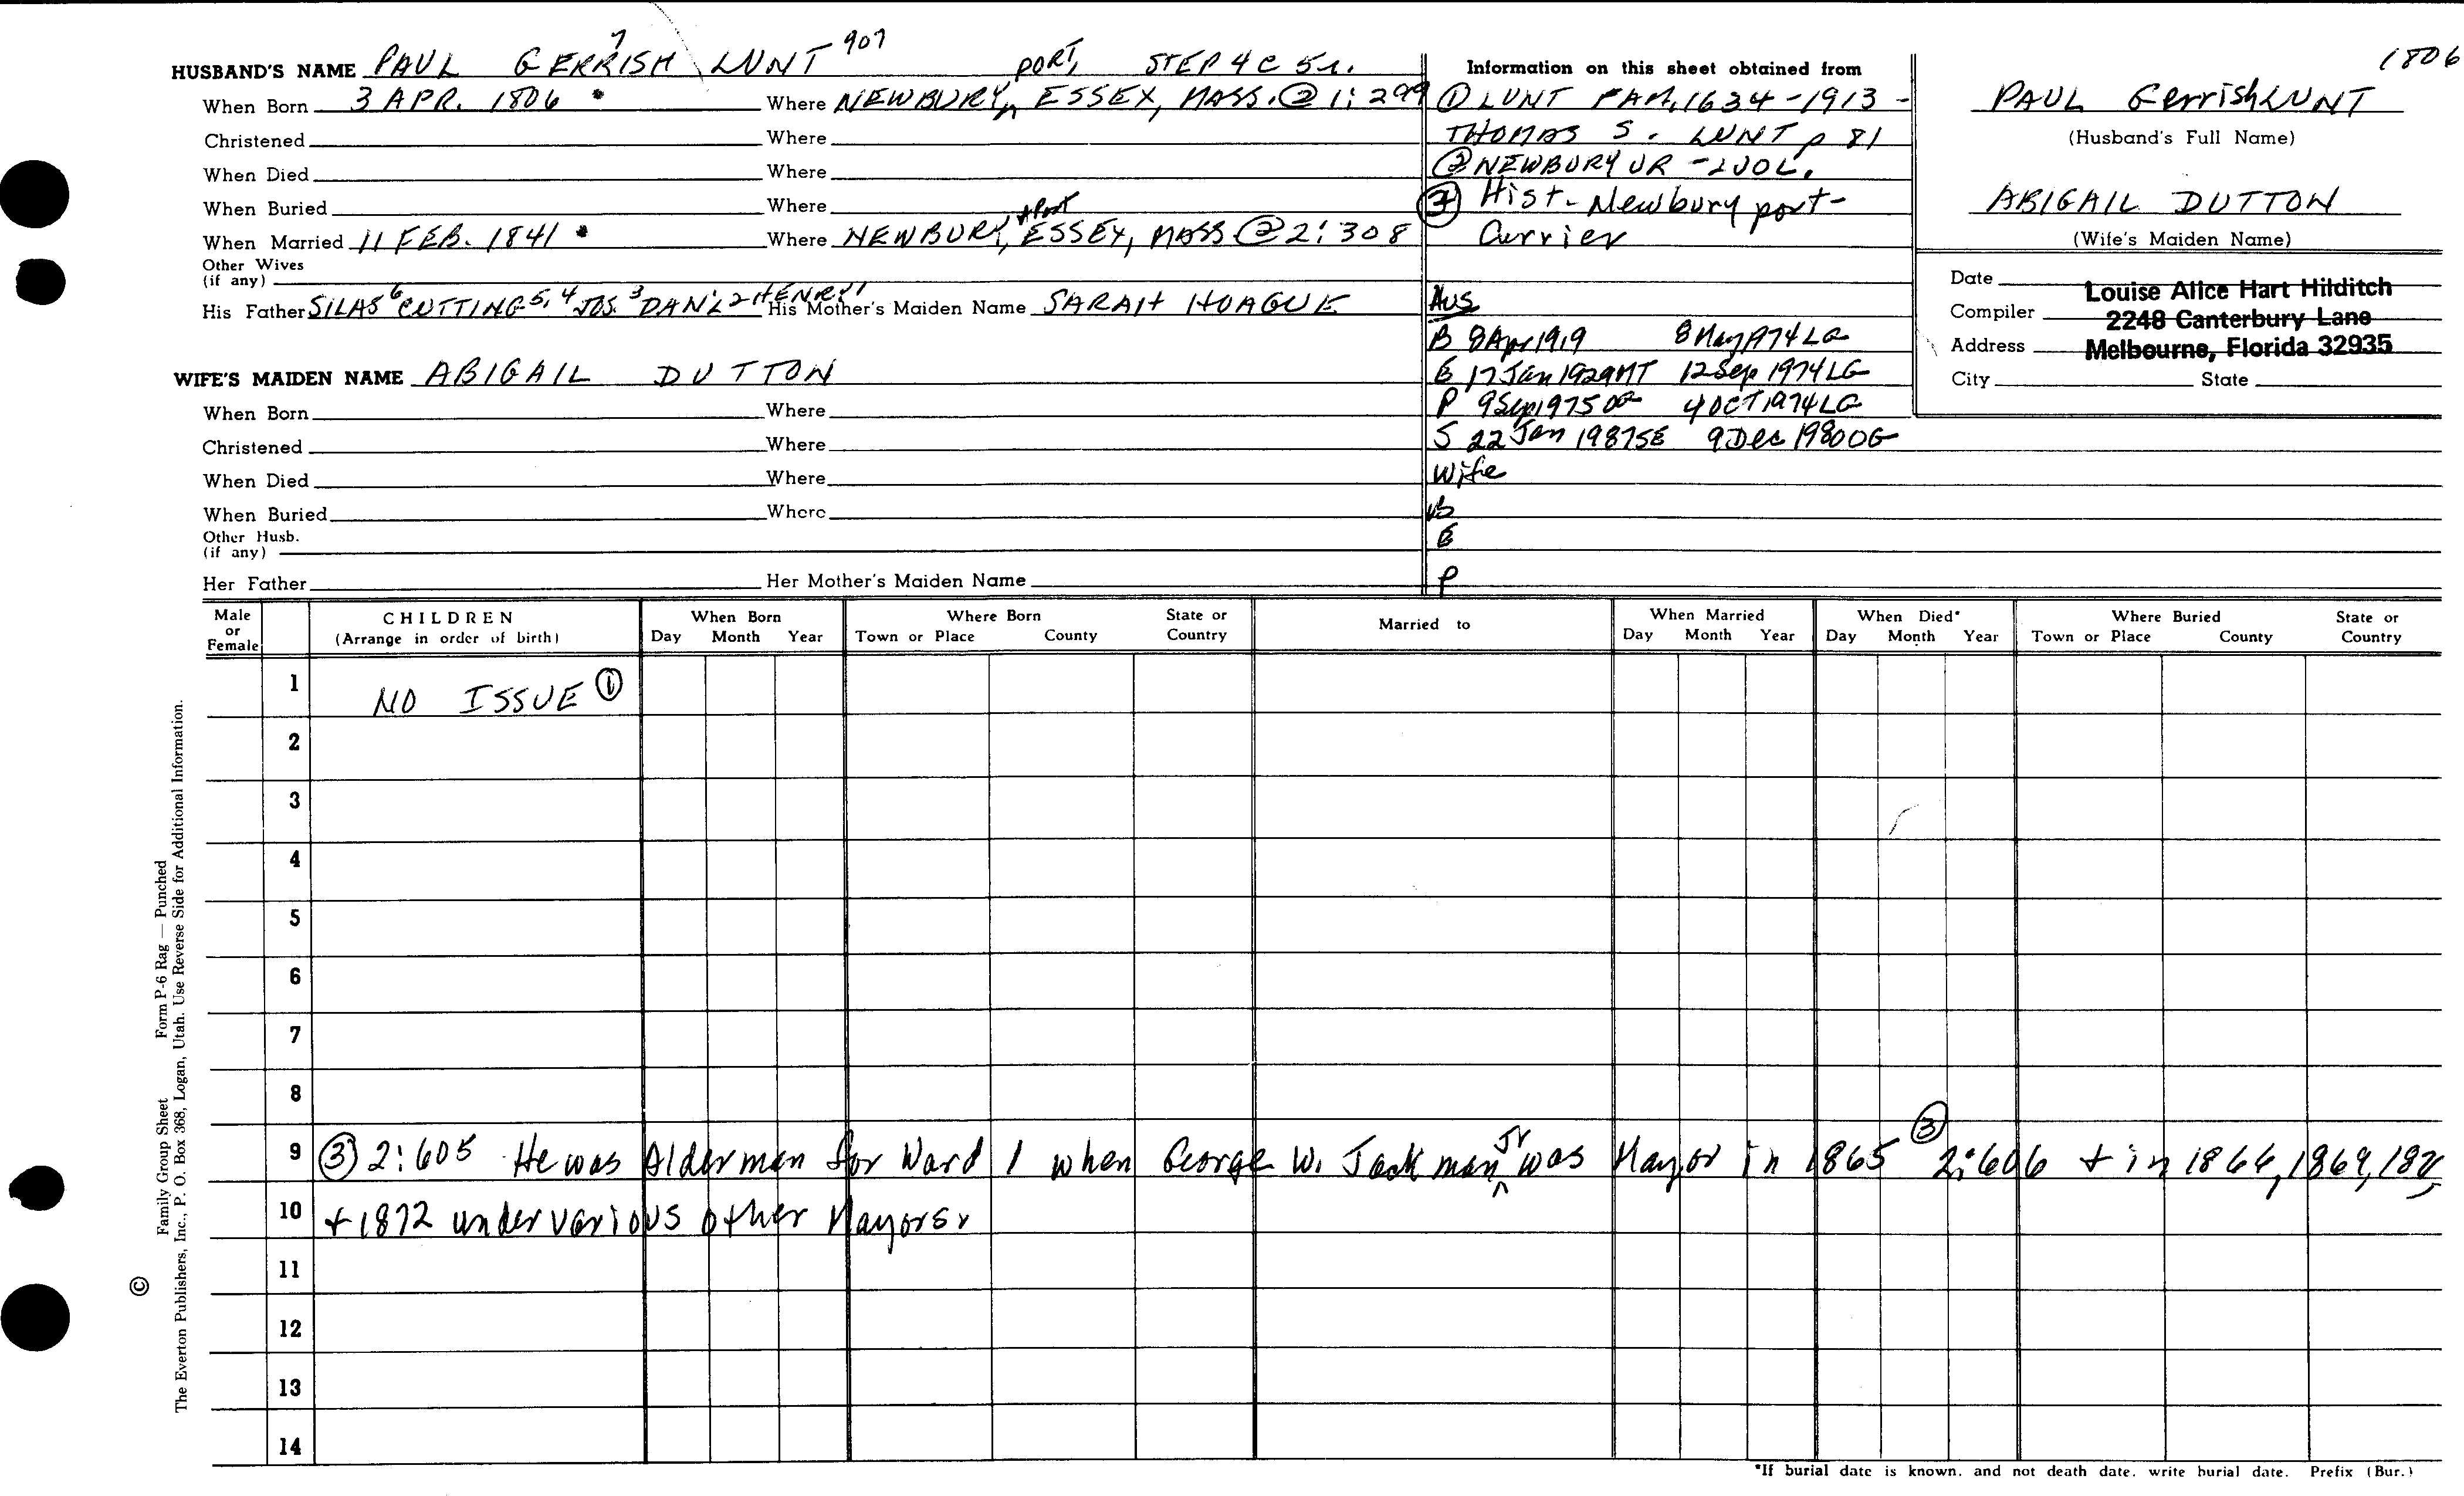 1806
HUSBAND'S NAME PAUL GERRISH 7 LUNT 907 PORT, STEP 4C 51.
When Born 3 APR. 1806 * Where NEWBURY, ESSEX, MASS. ② 1:299
Christened Where
When Died Where
When Buried Where
When Married 11 FEB. 1841 * Where NEWBURY, +Port ESSEX, MASS ② 2:308
Other Wives
(if any)
His Father SILAS 6 CUTTING 5, 4 JOS. 3 DAN'L 2 HENRY 1 His Mother's Maiden Name SARAH HOAGUE
WIFE'S MAIDEN NAME ABIGAIL DUTTON
When Born Where
Christened Where
When Died Where
When Buried Where
Other Husb.
(if any)
Her Father Her Mother's Maiden Name
Information on this sheet obtained from
① LUNT FAM, 1634-1913-
THOMAS S. LUNT p 81
② NEWBURY VR - 2 VOL.
③ Hist- Newburyport-
Currier
Hus
B 8 Apr 1919 8 May 1974 LG
E 17 Jan 1929 MT 12 Sep 1974 LG
P 9 Sep 1975 OG 4 OCT 1974 LG
S 22 Jan 1987 SE 9 Dec 1980 OG
Wife
B
E
P
PAUL GerrishLUNT
(Husband's Full Name)
ABIGAIL DUTTON
(Wife's Maiden Name)
Date
Louise Alice Hart Hilditch
Compiler 2248 Canterbury Lane
Address Melbourne, Florida 32935
City State
Male or Female CHILDREN (Arrange in order of birth) When Born Day Month Year Where Born Town or Place County State or Country Married to When Married Day Month Year When Died* Day Month Year Where Buried Town or Place County State or Country
1 NO ISSUE ①
2
3
4
5
6
7
8
9 ③ 2:605 He was Alderman for Ward 1 when George W. Jackman Jr was Mayor in 1865 ③ 2:606 + in 1866, 1869,
10 + 1872 under various other Mayors.
11
12
13
14
*If burial date is known, and not death date, write burial date. Prefix (Bur.)
© Family Group Sheet Form P-6 Rag — Punched
The Everton Publishers, Inc., P. O. Box 368, Logan, Utah. Use Reverse Side for Additional Information.